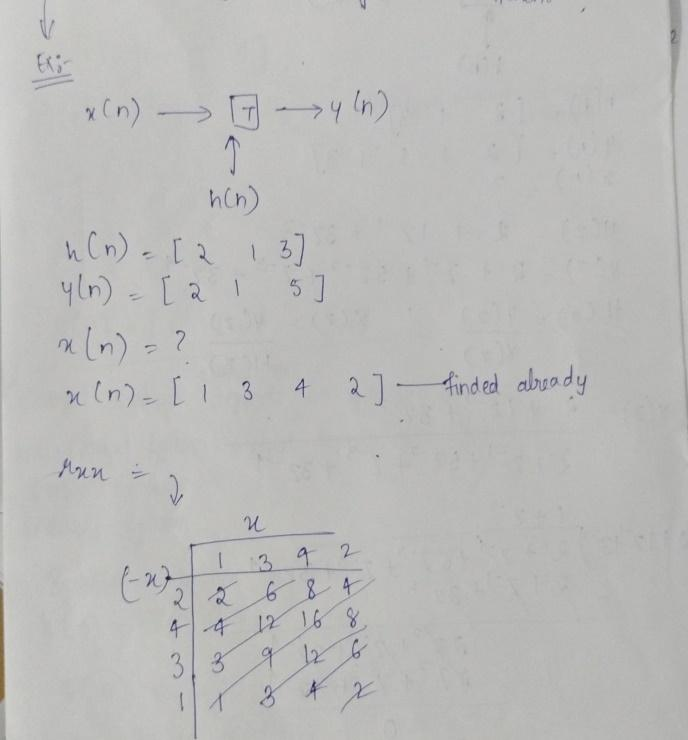 Ex:-
x(n) → T → y(n)
↑
h(n)
h(n) = [ 2 1 3 ]
y(n) = [ 2 1 5 ]
x(n) = ?
x(n) = [ 1 3 4 2 ] — finded already
rxx =
x
1 3 4 2
(-x)
2 2 6 8 4
4 4 12 16 8
3 3 9 12 6
1 1 3 4 2